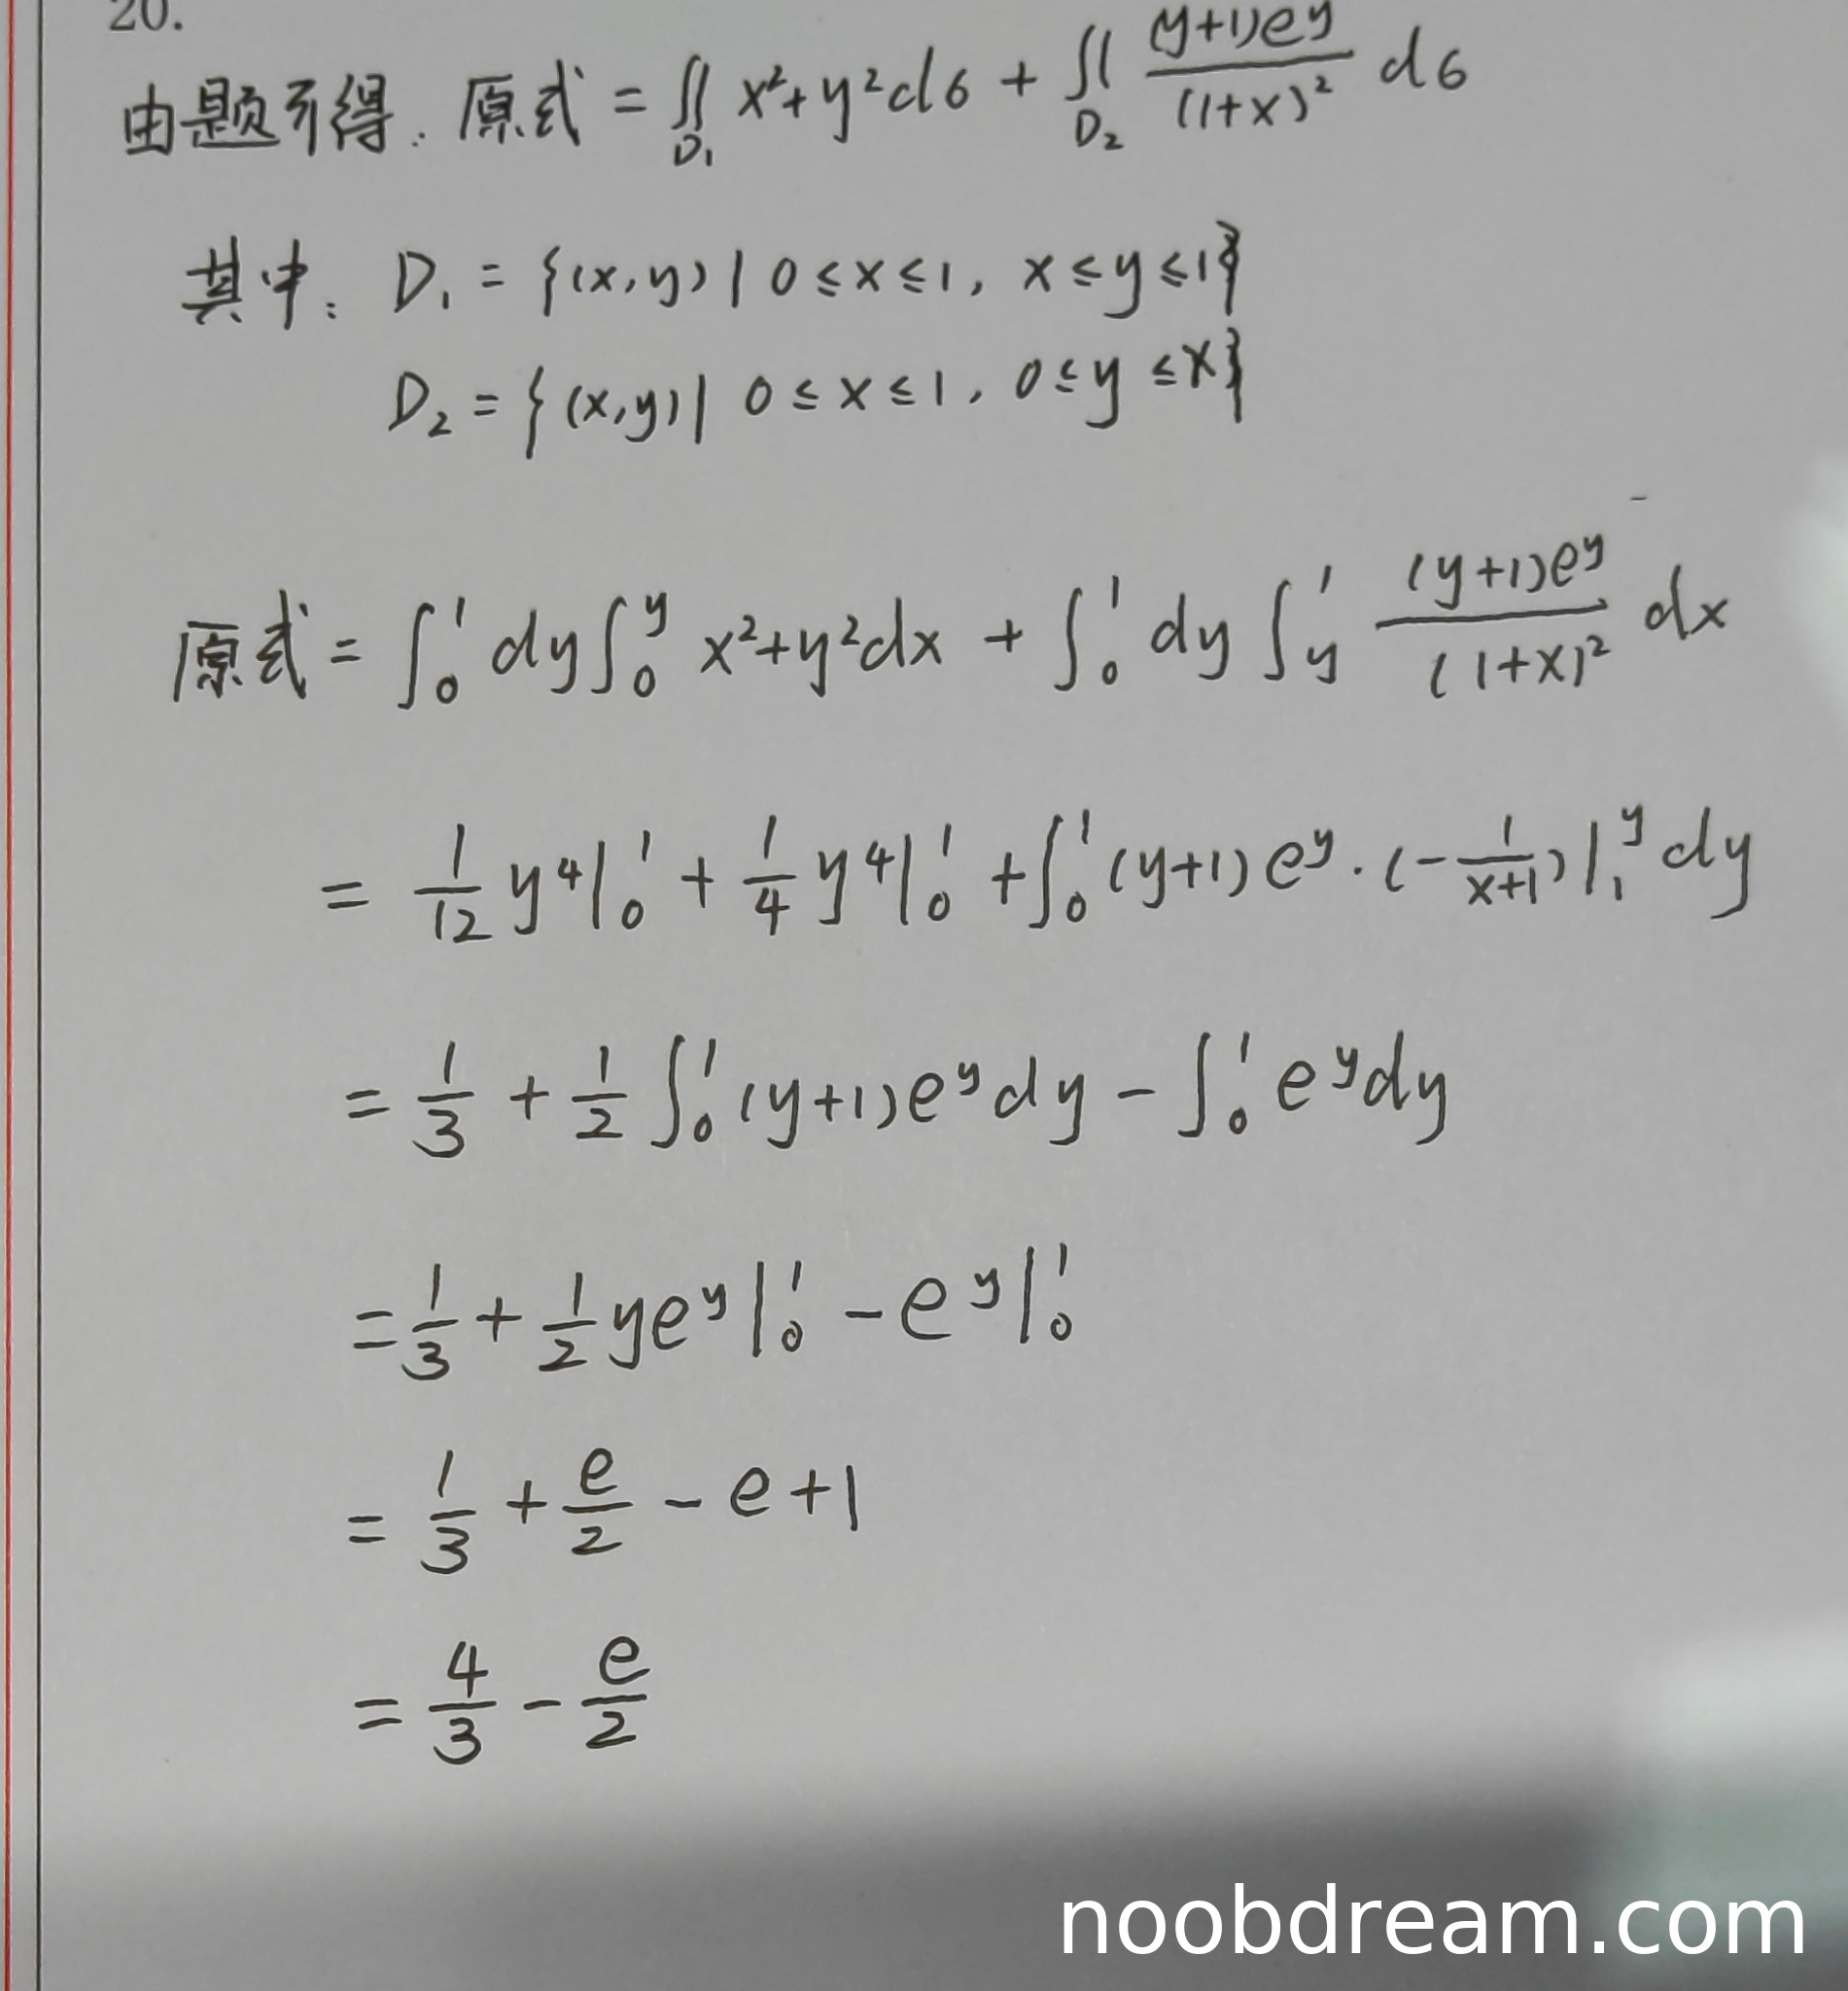 20.
由题可得. 原式 = ∬_{D₁} x²+y²dσ + ∬_{D₂} \frac{(y+1)e^y}{(1+x)²} dσ
其中: D₁ = {(x,y) | 0≤x≤1, x≤y≤1}
D₂ = {(x,y) | 0≤x≤1, 0≤y≤x}
原式 = ∫₀¹ dy ∫₀^y x²+y²dx + ∫₀¹ dy ∫_y^1 \frac{(y+1)e^y}{(1+x)²} dx
= \frac{1}{12} y⁴|₀¹ + \frac{1}{4} y⁴|₀¹ + ∫₀¹ (y+1)e^y·(-\frac{1}{x+1})|₁^y dy
= \frac{1}{3} + \frac{1}{2} ∫₀¹ (y+1)e^y dy - ∫₀¹ e^y dy
= \frac{1}{3} + \frac{1}{2} ye^y|₀¹ - e^y|₀¹
= \frac{1}{3} + \frac{e}{2} - e + 1
= \frac{4}{3} - \frac{e}{2}
noobdream.com